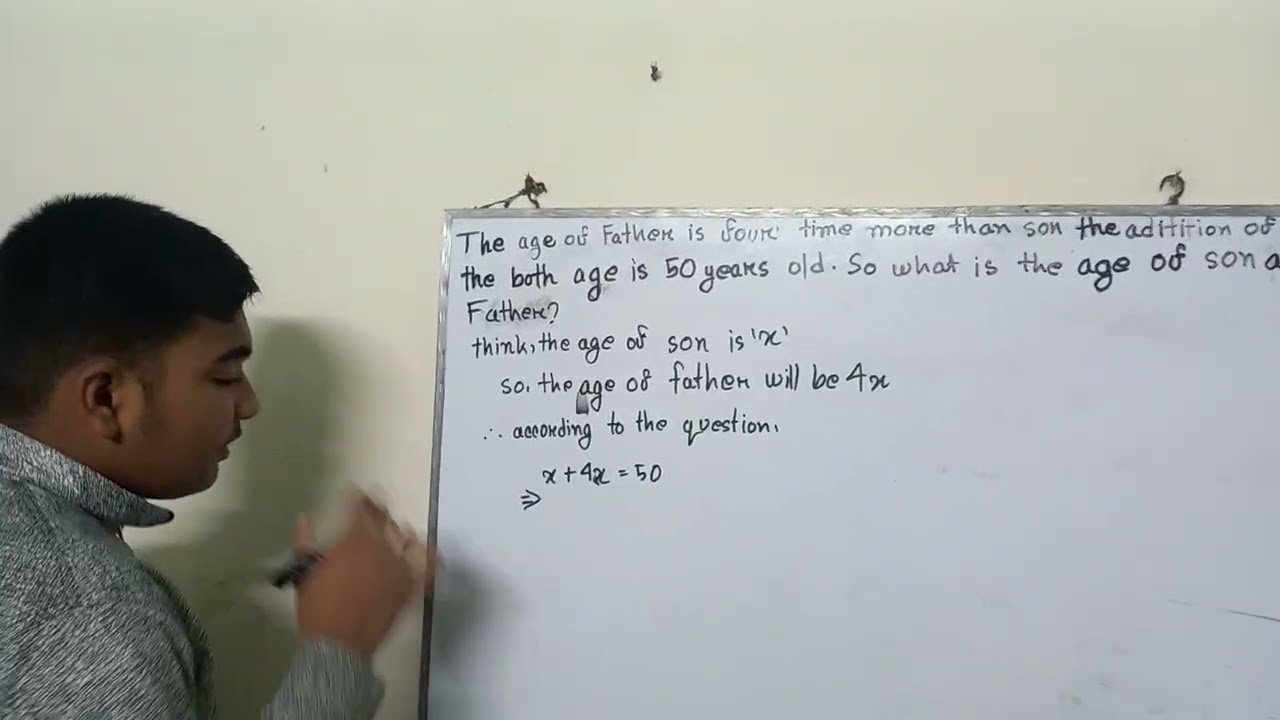 The age of Father is four time more than son the aditition of
the both age is 50 years old. So what is the age of son a
Father?
think, the age of son is 'x'
so, the age of father will be 4x
∴ according to the question,
x + 4x = 50
⇒